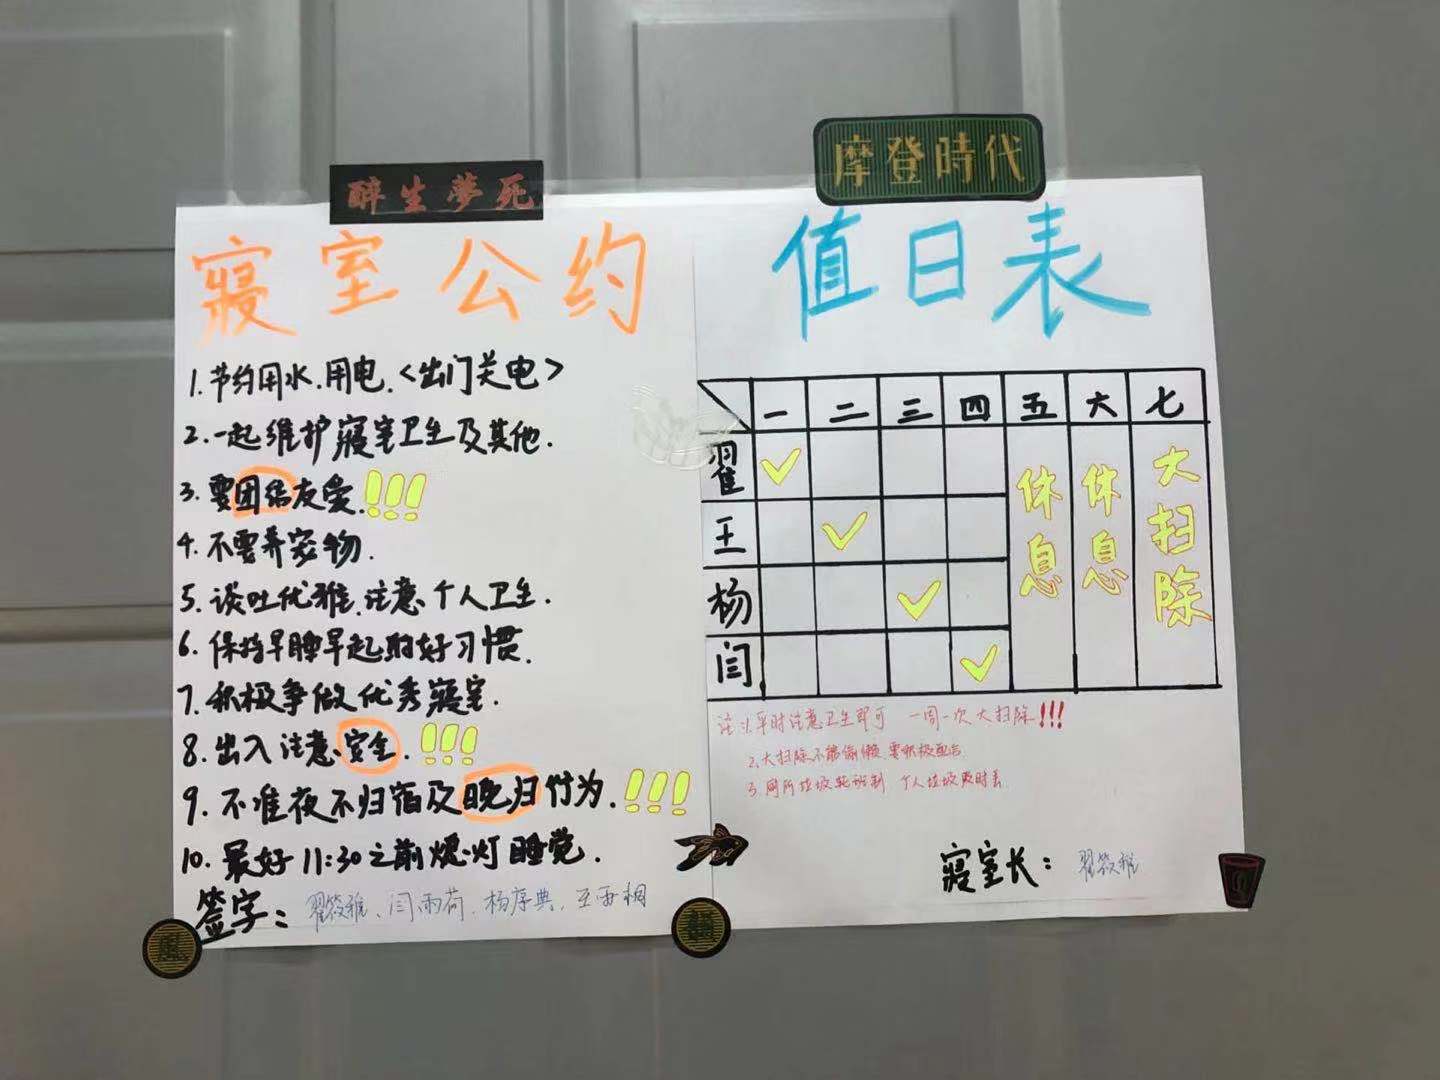 醉生夢死
寢室公约
1.节约用水.用电.<出门关电>
2.一起维护寢室卫生及其他.
3.要团结友爱.!!!
4.不要养宠物.
5.谈吐优雅.注意个人卫生.
6.保持早睡早起的好习惯.
7.积极争做优秀寢室.
8.出入注意安全.!!!
9.不准夜不归宿及晚归行为.!!!
10.最好11:30之前熄灯睡觉.
签字:翟筱雅、闫雨荷.杨序典.王雨桐
摩登時代
值日表
一 二 三 四 五 六 七
翟 ✓
王 ✓
杨 ✓
闫 ✓
休息
休息
大扫除
注:1.平时注意卫生即可 一周一次大扫除!!!
2.大扫除不能偷懒.要积极配合
3.厕所垃圾轮班制 个人垃圾及时丢
寢室长:翟筱雅